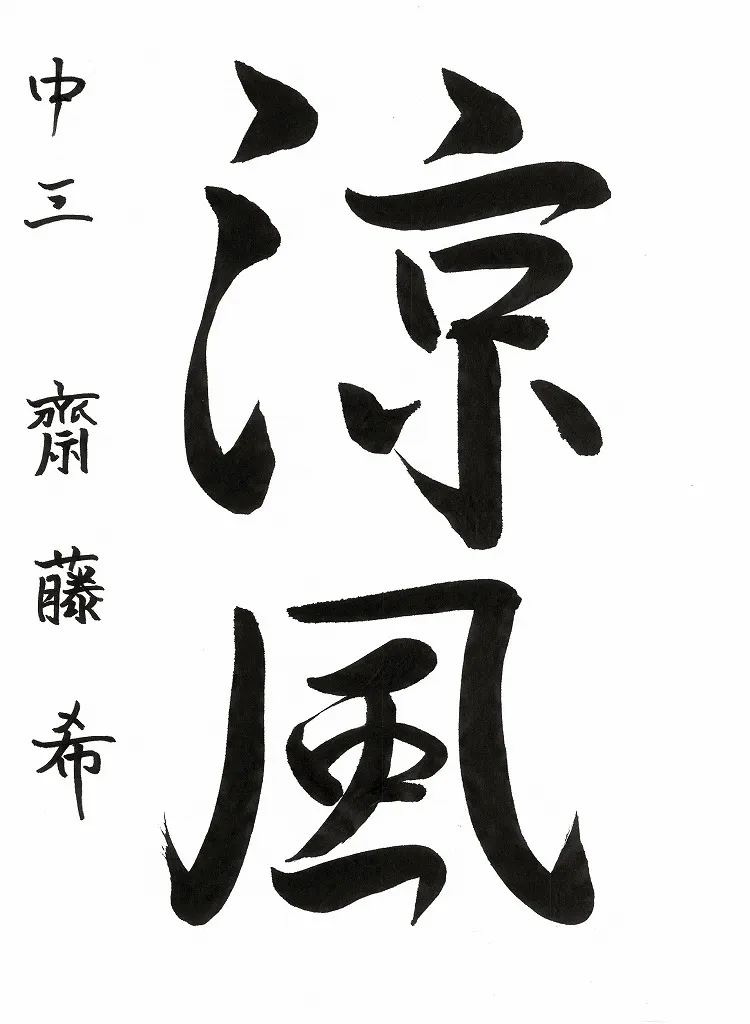 涼風
中三 齋藤希